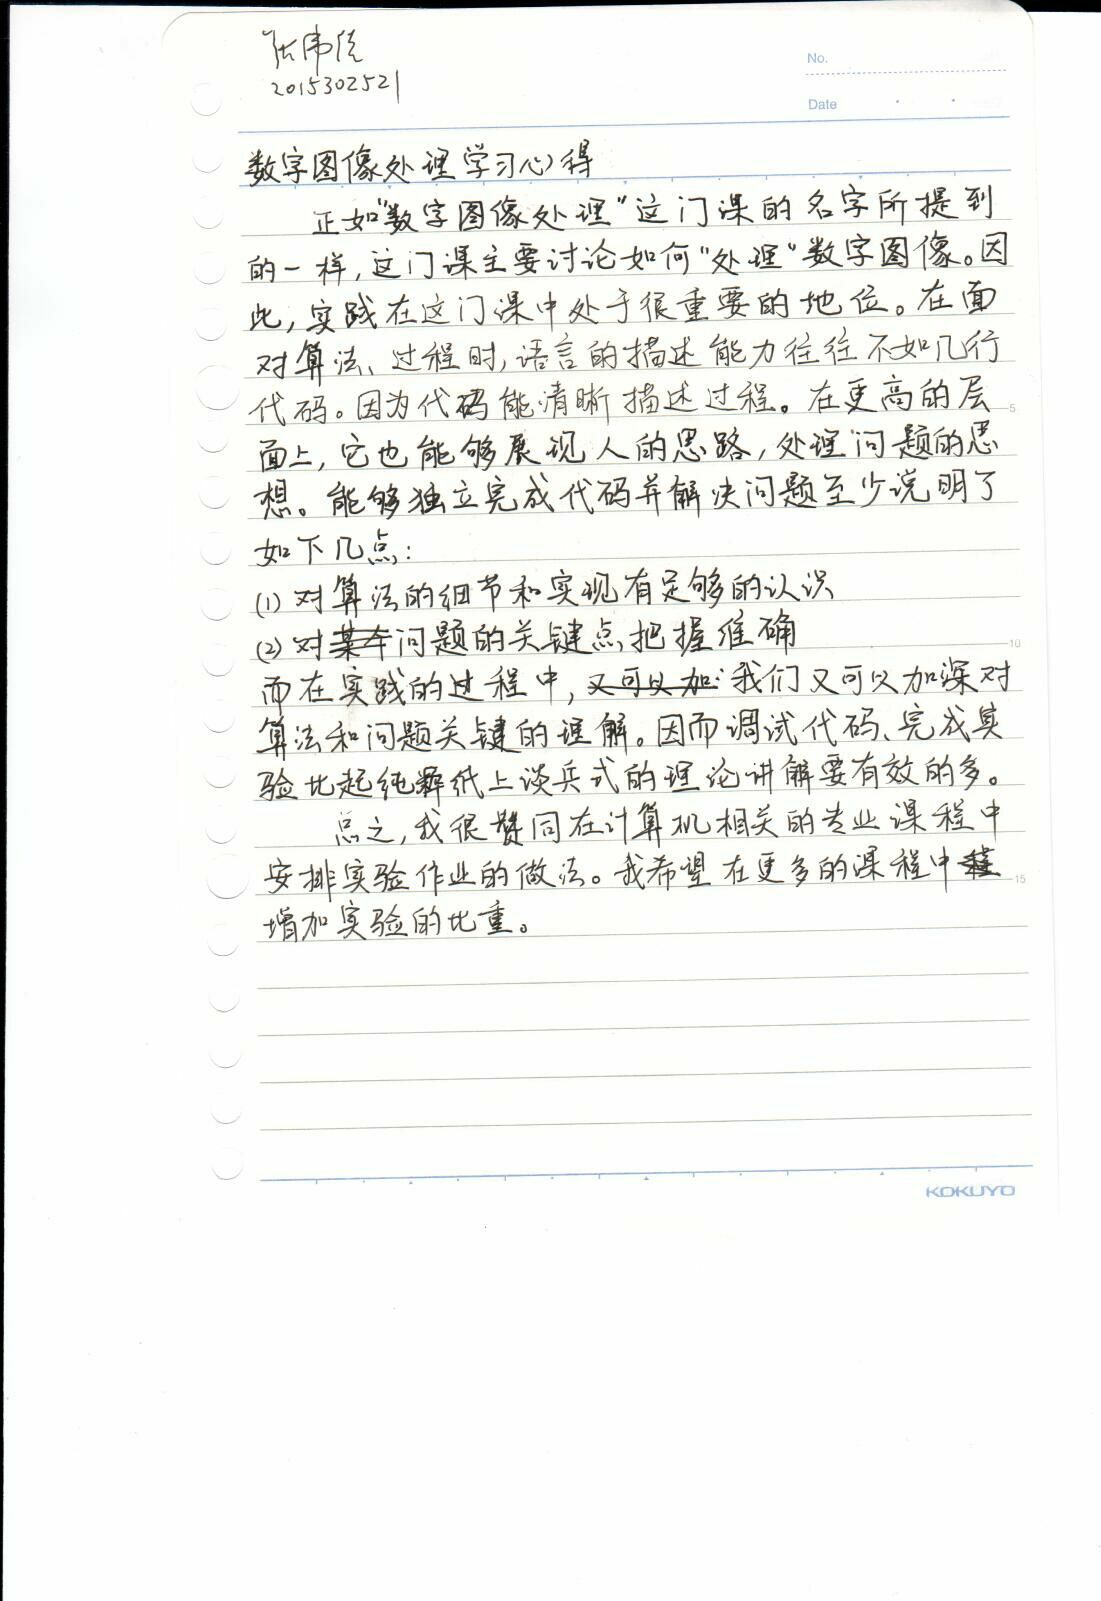 张伟
2015302521
No.
Date
数字图像处理学习心得
正如"数字图像处理"这门课的名字所提到
的一样,这门课主要讨论如何"处理"数字图像。因
此,实践在这门课中处于很重要的地位。在面
对算法、过程时,语言的描述能力往往不如几行
代码。因为代码能清晰描述过程。在更高的层
5
面上,它也能够展现人的思路,处理问题的思
想。能够独立完成代码并解决问题至少说明了
如下几点:
(1) 对算法的细节和实现有足够的认识
(2) 对问题的关键点把握准确
10
而在实践的过程中,又可以加我们又可以加深对
算法和问题关键的理解。因而调试代码、完成实
验比起纯纸上谈兵式的理论讲解要有效的多。
总之,我很赞同在计算机相关的专业课程中
安排实验作业的做法。我希望在更多的课程中
15
增加实验的比重。
KOKUYO